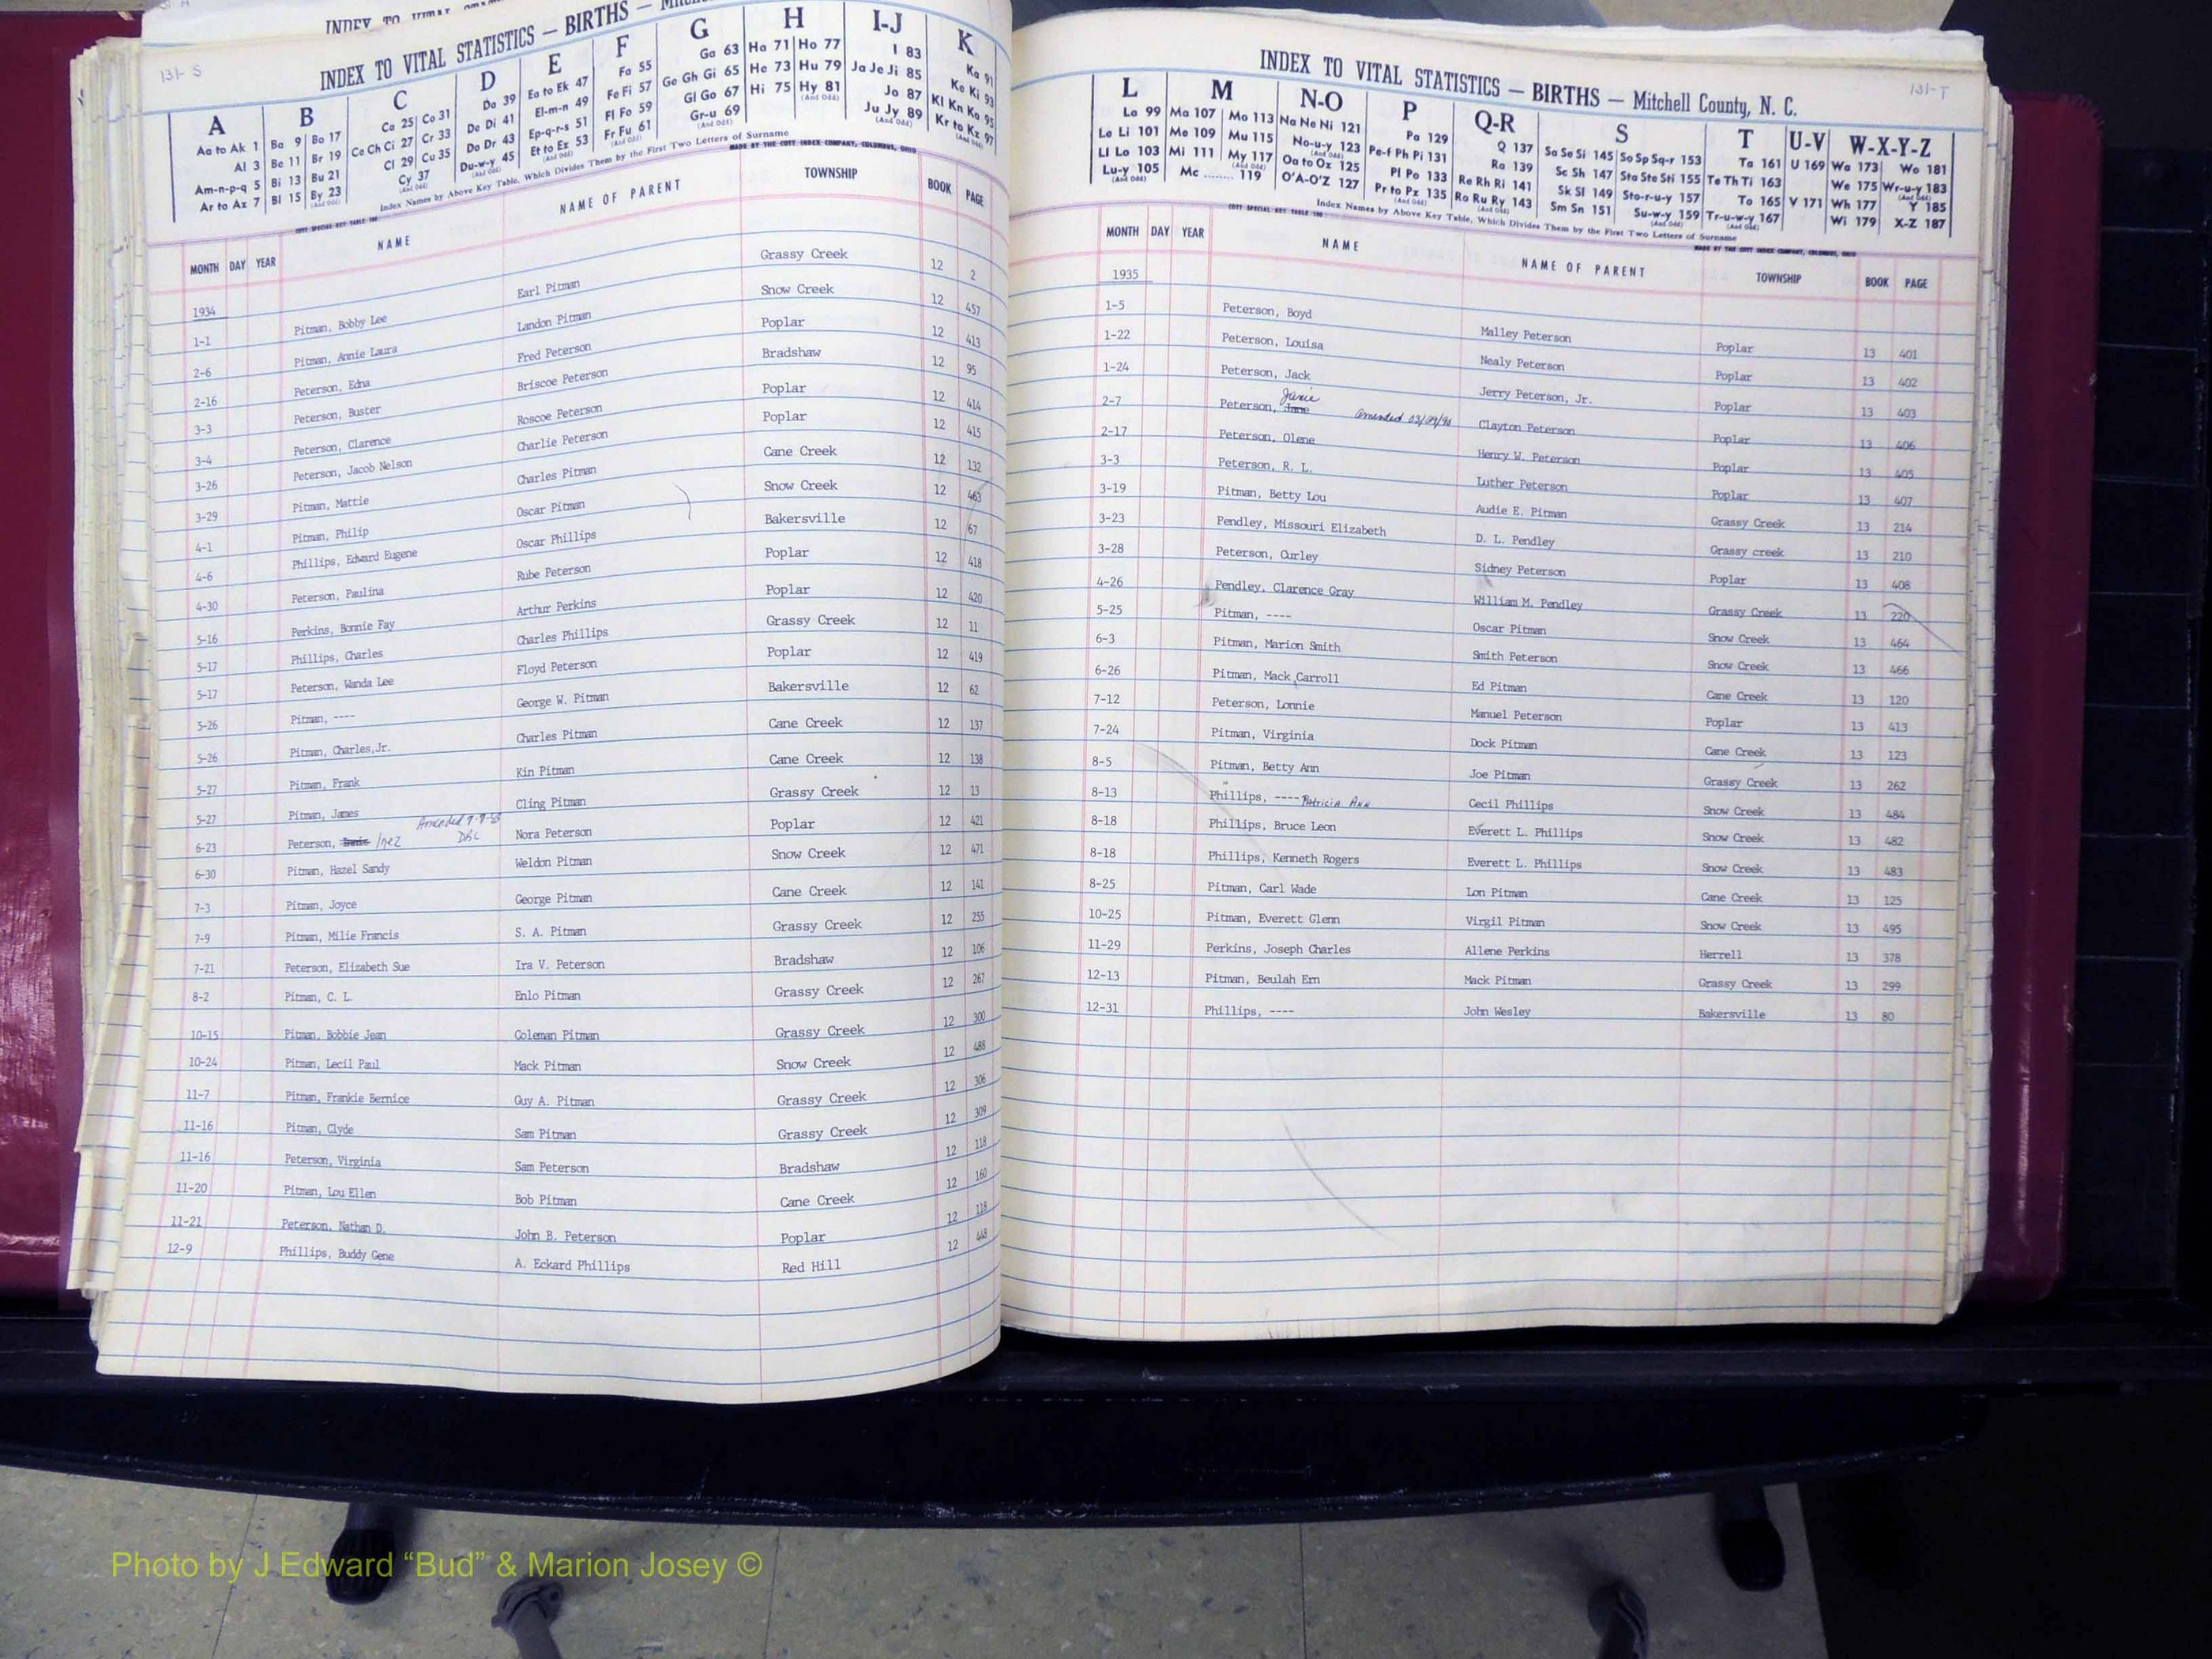 INDEX TO VITAL STATISTICS — BIRTHS —
131-S
A B C D E F G H I-J K
Aa to Ak 1 Ba 9 Bo 17 Ca 25 Co 31 Da 39 Ea to Ek 47 Fa 55 Ga 63 Ha 71 Ho 77 I 83 Ka 91
Al 3 Be 11 Br 19 Ce Ch Ci 27 Cr 33 De Di 41 El-m-n 49 Fe Fi 57 Ge Gh Gi 65 He 73 Hu 79 Ja Je Ji 85 Ke Ki 93
Am-n-p-q 5 Bi 13 Bu 21 Cl 29 Cu 35 Do Dr 43 Ep-q-r-s 51 Fl Fo 59 Gl Go 67 Hi 75 Hy 81 (And Odd) Jo 87 Kl Kn Ko 95
Ar to Az 7 Bl 15 By 23 (And Odd) Cy 37 (And Odd) Du-w-y 45 (And Odd) Et to Ez 53 (And Odd) Fr Fu 61 (And Odd) Gr-u 69 (And Odd) Ju Jy 89 (And Odd) Kr to Kz 97 (And Odd)
Index Names by Above Key Table, Which Divides Them by the First Two Letters of Surname
COTT SPECIAL KEY TABLE 100 MADE BY THE COTT INDEX COMPANY, COLUMBUS, OHIO
MONTH DAY YEAR NAME NAME OF PARENT TOWNSHIP BOOK PAGE
1934
1-1 Pitman, Bobby Lee Earl Pitman Grassy Creek 12 2
2-6 Pitman, Annie Laura Landon Pitman Snow Creek 12 457
2-16 Peterson, Edna Fred Peterson Poplar 12 413
3-3 Peterson, Buster Briscoe Peterson Bradshaw 12 95
3-4 Peterson, Clarence Roscoe Peterson Poplar 12 414
3-26 Peterson, Jacob Nelson Charlie Peterson Poplar 12 415
3-29 Pitman, Mattie Charles Pitman Cane Creek 12 132
4-1 Pitman, Philip Oscar Pitman Snow Creek 12 463
4-6 Phillips, Edward Eugene Oscar Phillips Bakersville 12 67
4-30 Peterson, Paulina Rube Peterson Poplar 12 418
5-16 Perkins, Bonnie Fay Arthur Perkins Poplar 12 420
5-17 Phillips, Charles Charles Phillips Grassy Creek 12 11
5-17 Peterson, Wanda Lee Floyd Peterson Poplar 12 419
5-26 Pitman, ---- George W. Pitman Bakersville 12 62
5-26 Pitman, Charles,Jr. Charles Pitman Cane Creek 12 137
5-27 Pitman, Frank Kin Pitman Cane Creek 12 138
5-27 Pitman, James Cling Pitman Grassy Creek 12 13
6-23 Peterson, Inez Amended DBC Nora Peterson Poplar 12 421
6-30 Pitman, Hazel Sandy Weldon Pitman Snow Creek 12 471
7-3 Pitman, Joyce George Pitman Cane Creek 12 141
7-9 Pitman, Milie Francis S. A. Pitman Grassy Creek 12 255
7-21 Peterson, Elizabeth Sue Ira V. Peterson Bradshaw 12 106
8-2 Pitman, C. L. Enlo Pitman Grassy Creek 12 267
10-15 Pitman, Bobbie Jean Coleman Pitman Grassy Creek 12 300
10-24 Pitman, Lecil Paul Mack Pitman Snow Creek 12 488
11-7 Pitman, Frankie Bernice Guy A. Pitman Grassy Creek 12 306
11-16 Pitman, Clyde Sam Pitman Grassy Creek 12 309
11-16 Peterson, Virginia Sam Peterson Bradshaw 12 118
11-20 Pitman, Lou Ellen Bob Pitman Cane Creek 12 160
11-21 Peterson, Nathan D. John B. Peterson Poplar 12 118
12-9 Phillips, Buddy Gene A. Eckard Phillips Red Hill 12 448
INDEX TO VITAL STATISTICS — BIRTHS — Mitchell County, N. C.
131-T
L M N-O P Q-R S T U-V W-X-Y-Z
La 99 Ma 107 Mo 113 Na Ne Ni 121 Pa 129 Q 137 Sa Se Si 145 So Sp Sq-r 153 Ta 161 U 169 Wa 173 Wo 181
Le Li 101 Me 109 Mu 115 No-u-y 123 (And Odd) Pe-f Ph Pi 131 Ra 139 Sc Sh 147 Sta Ste Sti 155 Te Th Ti 163 We 175 Wr-u-y 183 (And Odd)
Ll Lo 103 Mi 111 My 117 (And Odd) Oa to Oz 125 Pl Po 133 Re Rh Ri 141 Sk Sl 149 Sto-r-u-y 157 To 165 V 171 Wh 177 Y 185
Lu-y 105 (And Odd) Mc ........ 119 O'A-O'Z 127 Pr to Pz 135 (And Odd) Ro Ru Ry 143 (And Odd) Sm Sn 151 Su-w-y 159 (And Odd) Tr-u-w-y 167 (And Odd) Wi 179 X-Z 187
Index Names by Above Key Table, Which Divides Them by the First Two Letters of Surname
COTT SPECIAL KEY TABLE 100 MADE BY THE COTT INDEX COMPANY, COLUMBUS, OHIO
MONTH DAY YEAR NAME NAME OF PARENT TOWNSHIP BOOK PAGE
1935
1-5 Peterson, Boyd Malley Peterson Poplar 13 401
1-22 Peterson, Louisa Nealy Peterson Poplar 13 402
1-24 Peterson, Jack Jerry Peterson, Jr. Poplar 13 403
2-7 Peterson, Jane Janie Amended Clayton Peterson Poplar 13 406
2-17 Peterson, Olene Henry W. Peterson Poplar 13 405
3-3 Peterson, R. L. Luther Peterson Poplar 13 407
3-19 Pitman, Betty Lou Audie E. Pitman Grassy Creek 13 214
3-23 Pendley, Missouri Elizabeth D. L. Pendley Grassy creek 13 210
3-28 Peterson, Curley Sidney Peterson Poplar 13 408
4-26 Pendley, Clarence Gray William M. Pendley Grassy Creek 13 220
5-25 Pitman, ---- Oscar Pitman Snow Creek 13 464
6-3 Pitman, Marion Smith Smith Peterson Snow Creek 13 466
6-26 Pitman, Mack Carroll Ed Pitman Cane Creek 13 120
7-12 Peterson, Lonnie Manuel Peterson Poplar 13 413
7-24 Pitman, Virginia Dock Pitman Cane Creek 13 123
8-5 Pitman, Betty Ann Joe Pitman Grassy Creek 13 262
8-13 Phillips, ---- Patricia Ann Cecil Phillips Snow Creek 13 484
8-18 Phillips, Bruce Leon Everett L. Phillips Snow Creek 13 482
8-18 Phillips, Kenneth Rogers Everett L. Phillips Snow Creek 13 483
8-25 Pitman, Carl Wade Lon Pitman Cane Creek 13 125
10-25 Pitman, Everett Glenn Virgil Pitman Snow Creek 13 495
11-29 Perkins, Joseph Charles Allene Perkins Herrell 13 378
12-13 Pitman, Beulah Ern Mack Pitman Grassy Creek 13 299
12-31 Phillips, ---- John Wesley Bakersville 13 80
Photo by J Edward “Bud” & Marion Josey ©